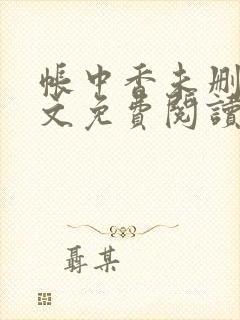 帳中香未删
文免費閱讀
聶某